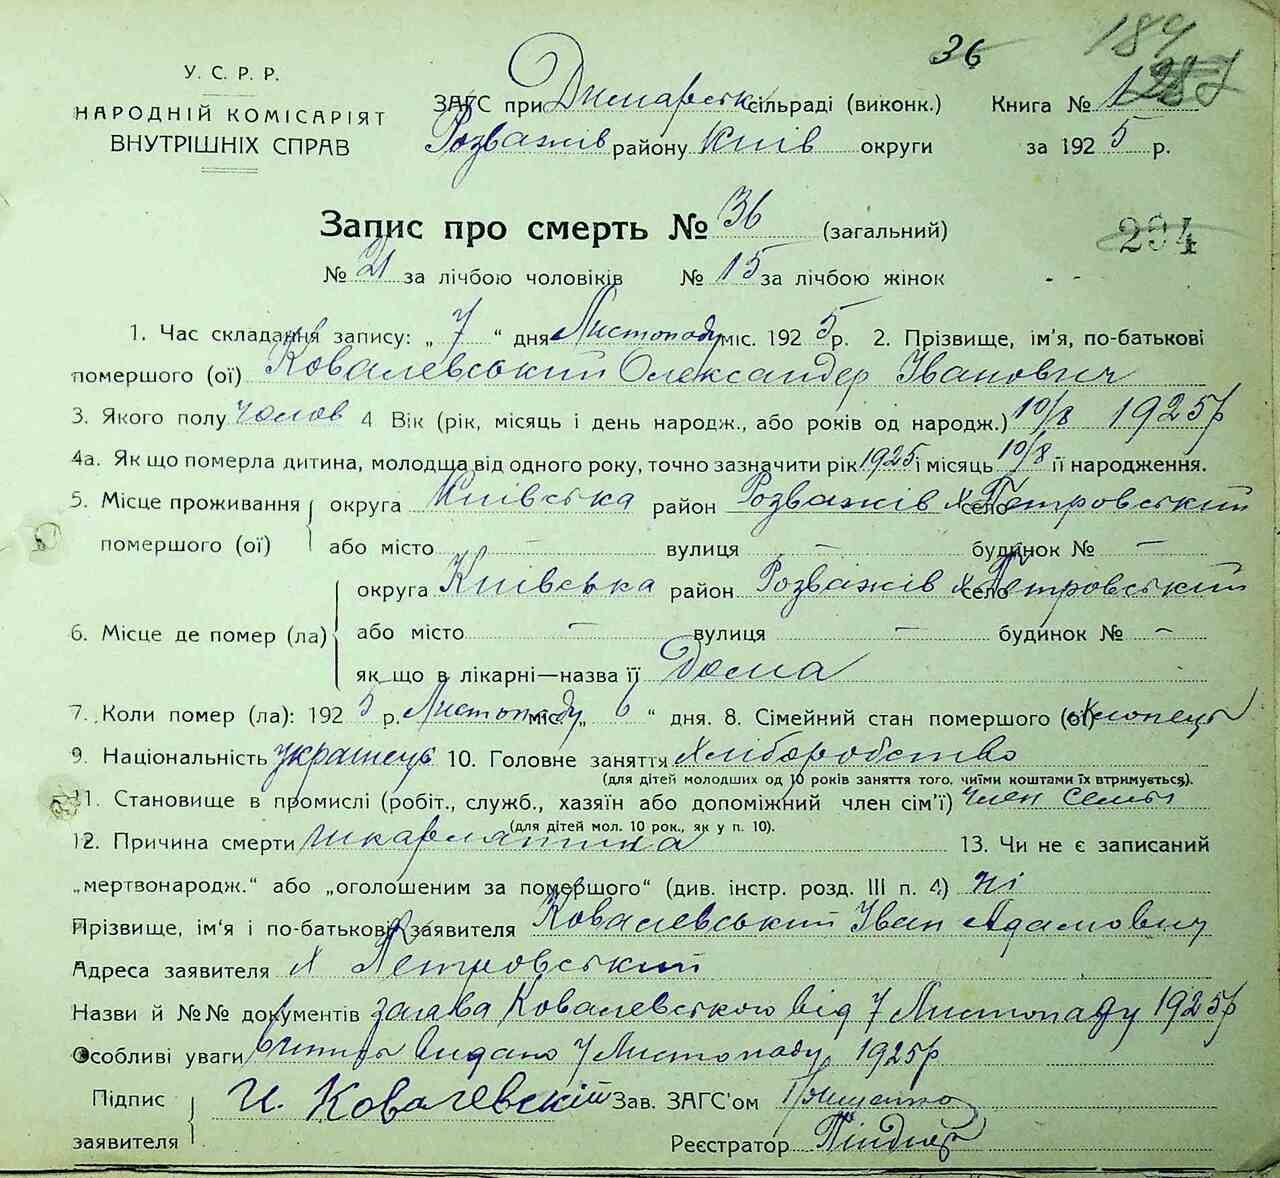 36 184
У. С. Р. Р.
НАРОДНІЙ КОМІСАРІЯТ
ВНУТРІШНІХ СПРАВ
ЗАГС при Димарськ сільраді (виконк.) Книга № 1
Розважів району Київ округи за 1925 р.
Запис про смерть № 36 (загальний)
294
№ 21 за лічбою чоловіків № 15 за лічбою жінок
1. Час складання запису: „ 7 “ дня Листопаду міс. 1925 р. 2. Прізвище, ім'я, по-батькові
помершого (ої) Ковалевський Олександер Іванович
3. Якого полу чолов 4 Вік (рік, місяць і день народж., або років од народж.) 10/8 1925р
4а. Як що померла дитина, молодща від одного року, точно зазначити рік 1925 і місяць 10/8 її народження.
5. Місце проживання округа Київська район Розважів село х Петровський
помершого (ої) або місто — вулиця — будинок № —
округа Київська район Розважів село х Петровський
6. Місце де помер (ла) або місто — вулиця — будинок № —
як що в лікарні—назва її Дома
7. Коли помер (ла): 1925 р. Листопаду міс. „ 6 “ дня. 8. Сімейний стан помершого (ої) хлопець
9. Національність українець 10. Головне заняття Хліборобство
(для дітей молодших од 10 років заняття того, чиїми коштами їх втримується).
11. Становище в промислі (робіт., служб., хазяїн або допоміжний член сім'ї) член семьї
(для дітей мол. 10 рок., як у п. 10).
12. Причина смерти шкарлятина 13. Чи не є записаний
„мертвонародж.“ або „оголошеним за помершого“ (див. інстр. розд. III п. 4) ні
Прізвище, ім'я і по-батькові заявителя Ковалевський Іван Адамович
Адреса заявителя х Петровський
Назви й №№ документів заява Ковалевського від 7 Листопаду 1925р
Особливі уваги видано 7 Листопаду 1925р
Підпис заявителя И. Ковалевскій Зав. ЗАГС'ом
Реєстратор